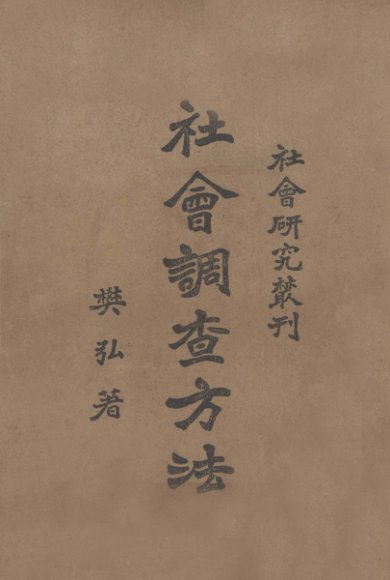 社會研究叢刊
社會調查方法
樊弘著